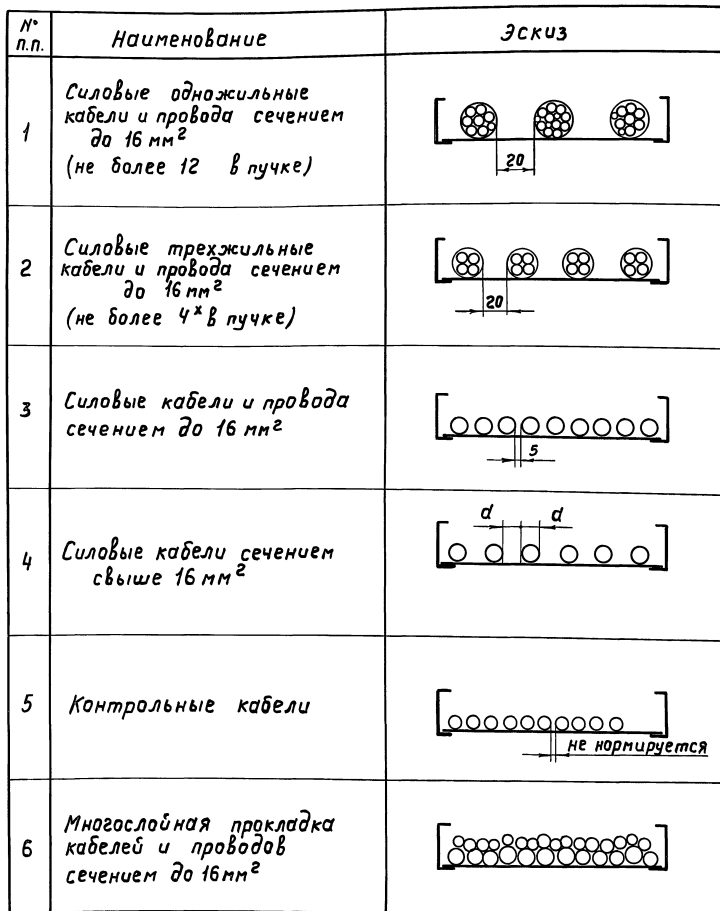 № п.п.
Наименование
Эскиз
1
Силовые одножильные
кабели и провода сечением
до 16 мм²
(не более 12 в пучке)
20
2
Силовые трехжильные
кабели и провода сечением
до 16 мм²
(не более 4ˣ в пучке)
20
3
Силовые кабели и провода
сечением до 16 мм²
5
4
Силовые кабели сечением
свыше 16 мм²
d d
5
Контрольные кабели
не нормируется
6
Многослойная прокладка
кабелей и проводов
сечением до 16 мм²